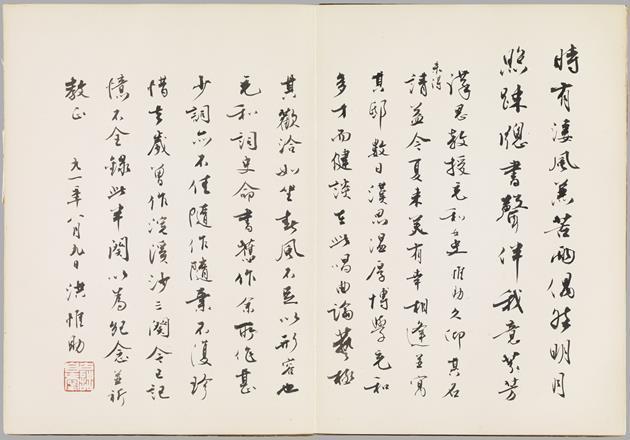 時有淒風兼苦雨偶然明月
照疎牕書聲伴我竟芬芳
漢思教授充和女史惟助久仰其名
未得
請益今夏來美有幸相逢並寓
其邸數日漢思溫厚博學充和
多才而健談在此唱曲論藝極
其歡洽如坐春風不足以形容也
充和詞史命書舊作余所作甚
少詞亦不佳隨作隨棄不復珍
惜去歲曾作浣溪沙三闋今已記
憶不全錄此半闋以為紀念並祈
教正 九一年八月九日 洪惟助